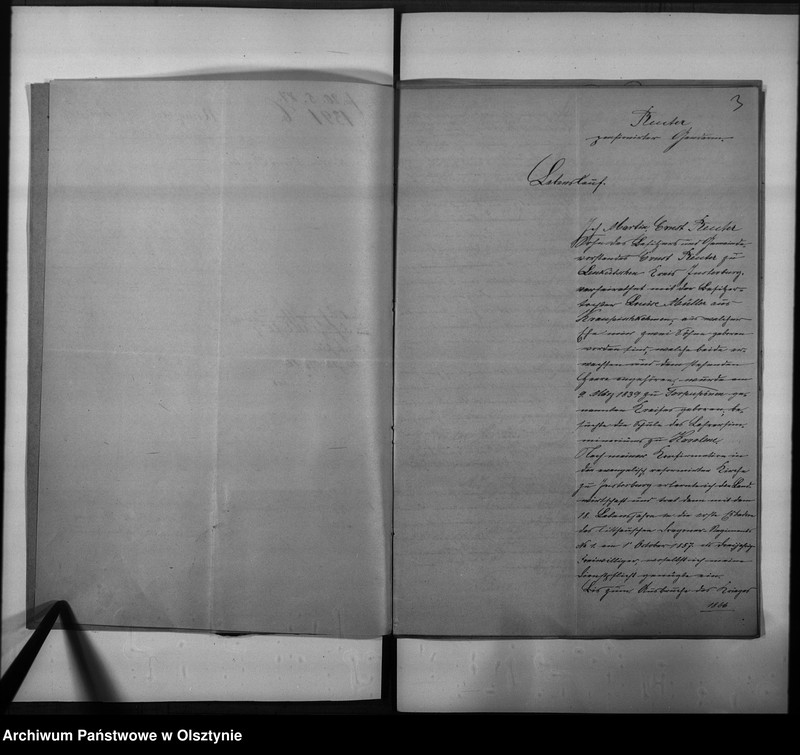 3
Reuter
pensionierter Gendarm.
Lebenslauf.
Ich Martin Ernst Reuter
Sohn des Besitzers und Gemeinde-
vorstandes Ernst Reuter zu
Kreis Insterburg,
verheirathet mit der Besitzer-
tochter Louise Müller aus
aus welcher
Ehe nur zwei Söhne geboren
worden sind, welche beide er-
wachsen und dem stehenden
Heere angehören, wurde am
9. März 1839 zu ge-
nannten Kreises geboren, be-
suchte die Schule des Lehrerse-
minariums zu Karalene.
Nach meiner Konfirmation in
der evangelisch reformirten Kirche
zu Insterburg erlernte ich die Land-
wirthschaft und trat dann mit dem
18. Lebensjahre in die erste Eskadron
des Litthauischen Dragoner-Regiments
No 1 am 1 October 1857 als dreijährig
Freiwilliger, woselbst ich meine
Dienstpflicht genügte ein.
Bis zum Ausbruche des Krieges
1866
Archiwum Państwowe w Olsztynie